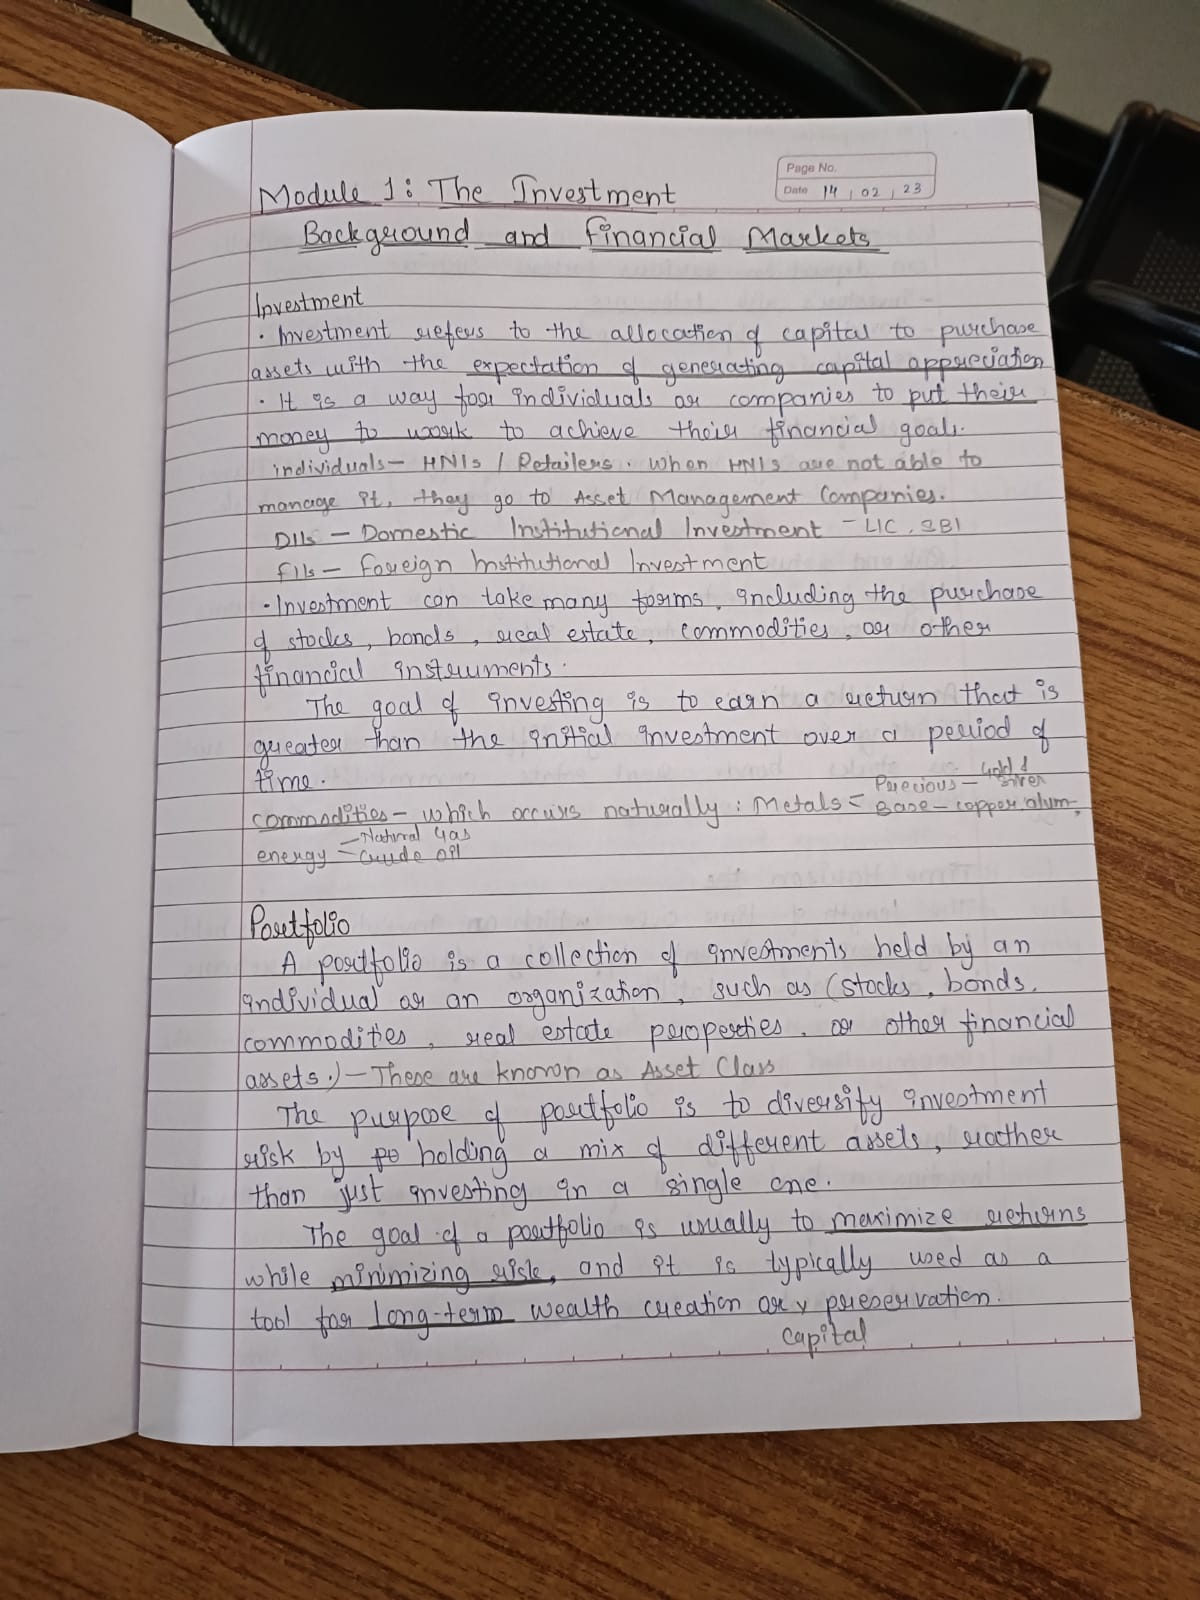 Page No.
Date 14 02 23
Module 1: The Investment
Background and Financial Markets
Investment
· Investment refers to the allocation of capital to purchase
assets with the expectation of generating capital appreciation
· It is a way for individuals or companies to put their
money to work to achieve their financial goals.
individuals- HNIs / Retailers. When HNIs are not able to
manage it, they go to Asset Management Companies.
DIIs - Domestic Institutional Investment - LIC, SBI
FIIs - Foreign Institutional Investment
· Investment can take many forms, including the purchase
of stocks, bonds, real estate, commodities, or other
financial instruments.
The goal of investing is to earn a return that is
greater than the initial investment over a period of
time.
Precious - Gold & Silver
commodities - which occurs naturally : Metals = Base - copper alum.
- Natural Gas
energy = Crude Oil
Portfolio
A portfolio is a collection of investments held by an
individual or an organization, such as (stocks, bonds,
commodities, real estate properties, or other financial
assets.) - These are known as Asset Class
The purpose of portfolio is to diversify investment
risk by po holding a mix of different assets, rather
than just investing in a single one.
The goal of a portfolio is usually to maximize returns
while minimizing risk, and it is typically used as a
tool for long-term wealth creation or v preservation.
capital